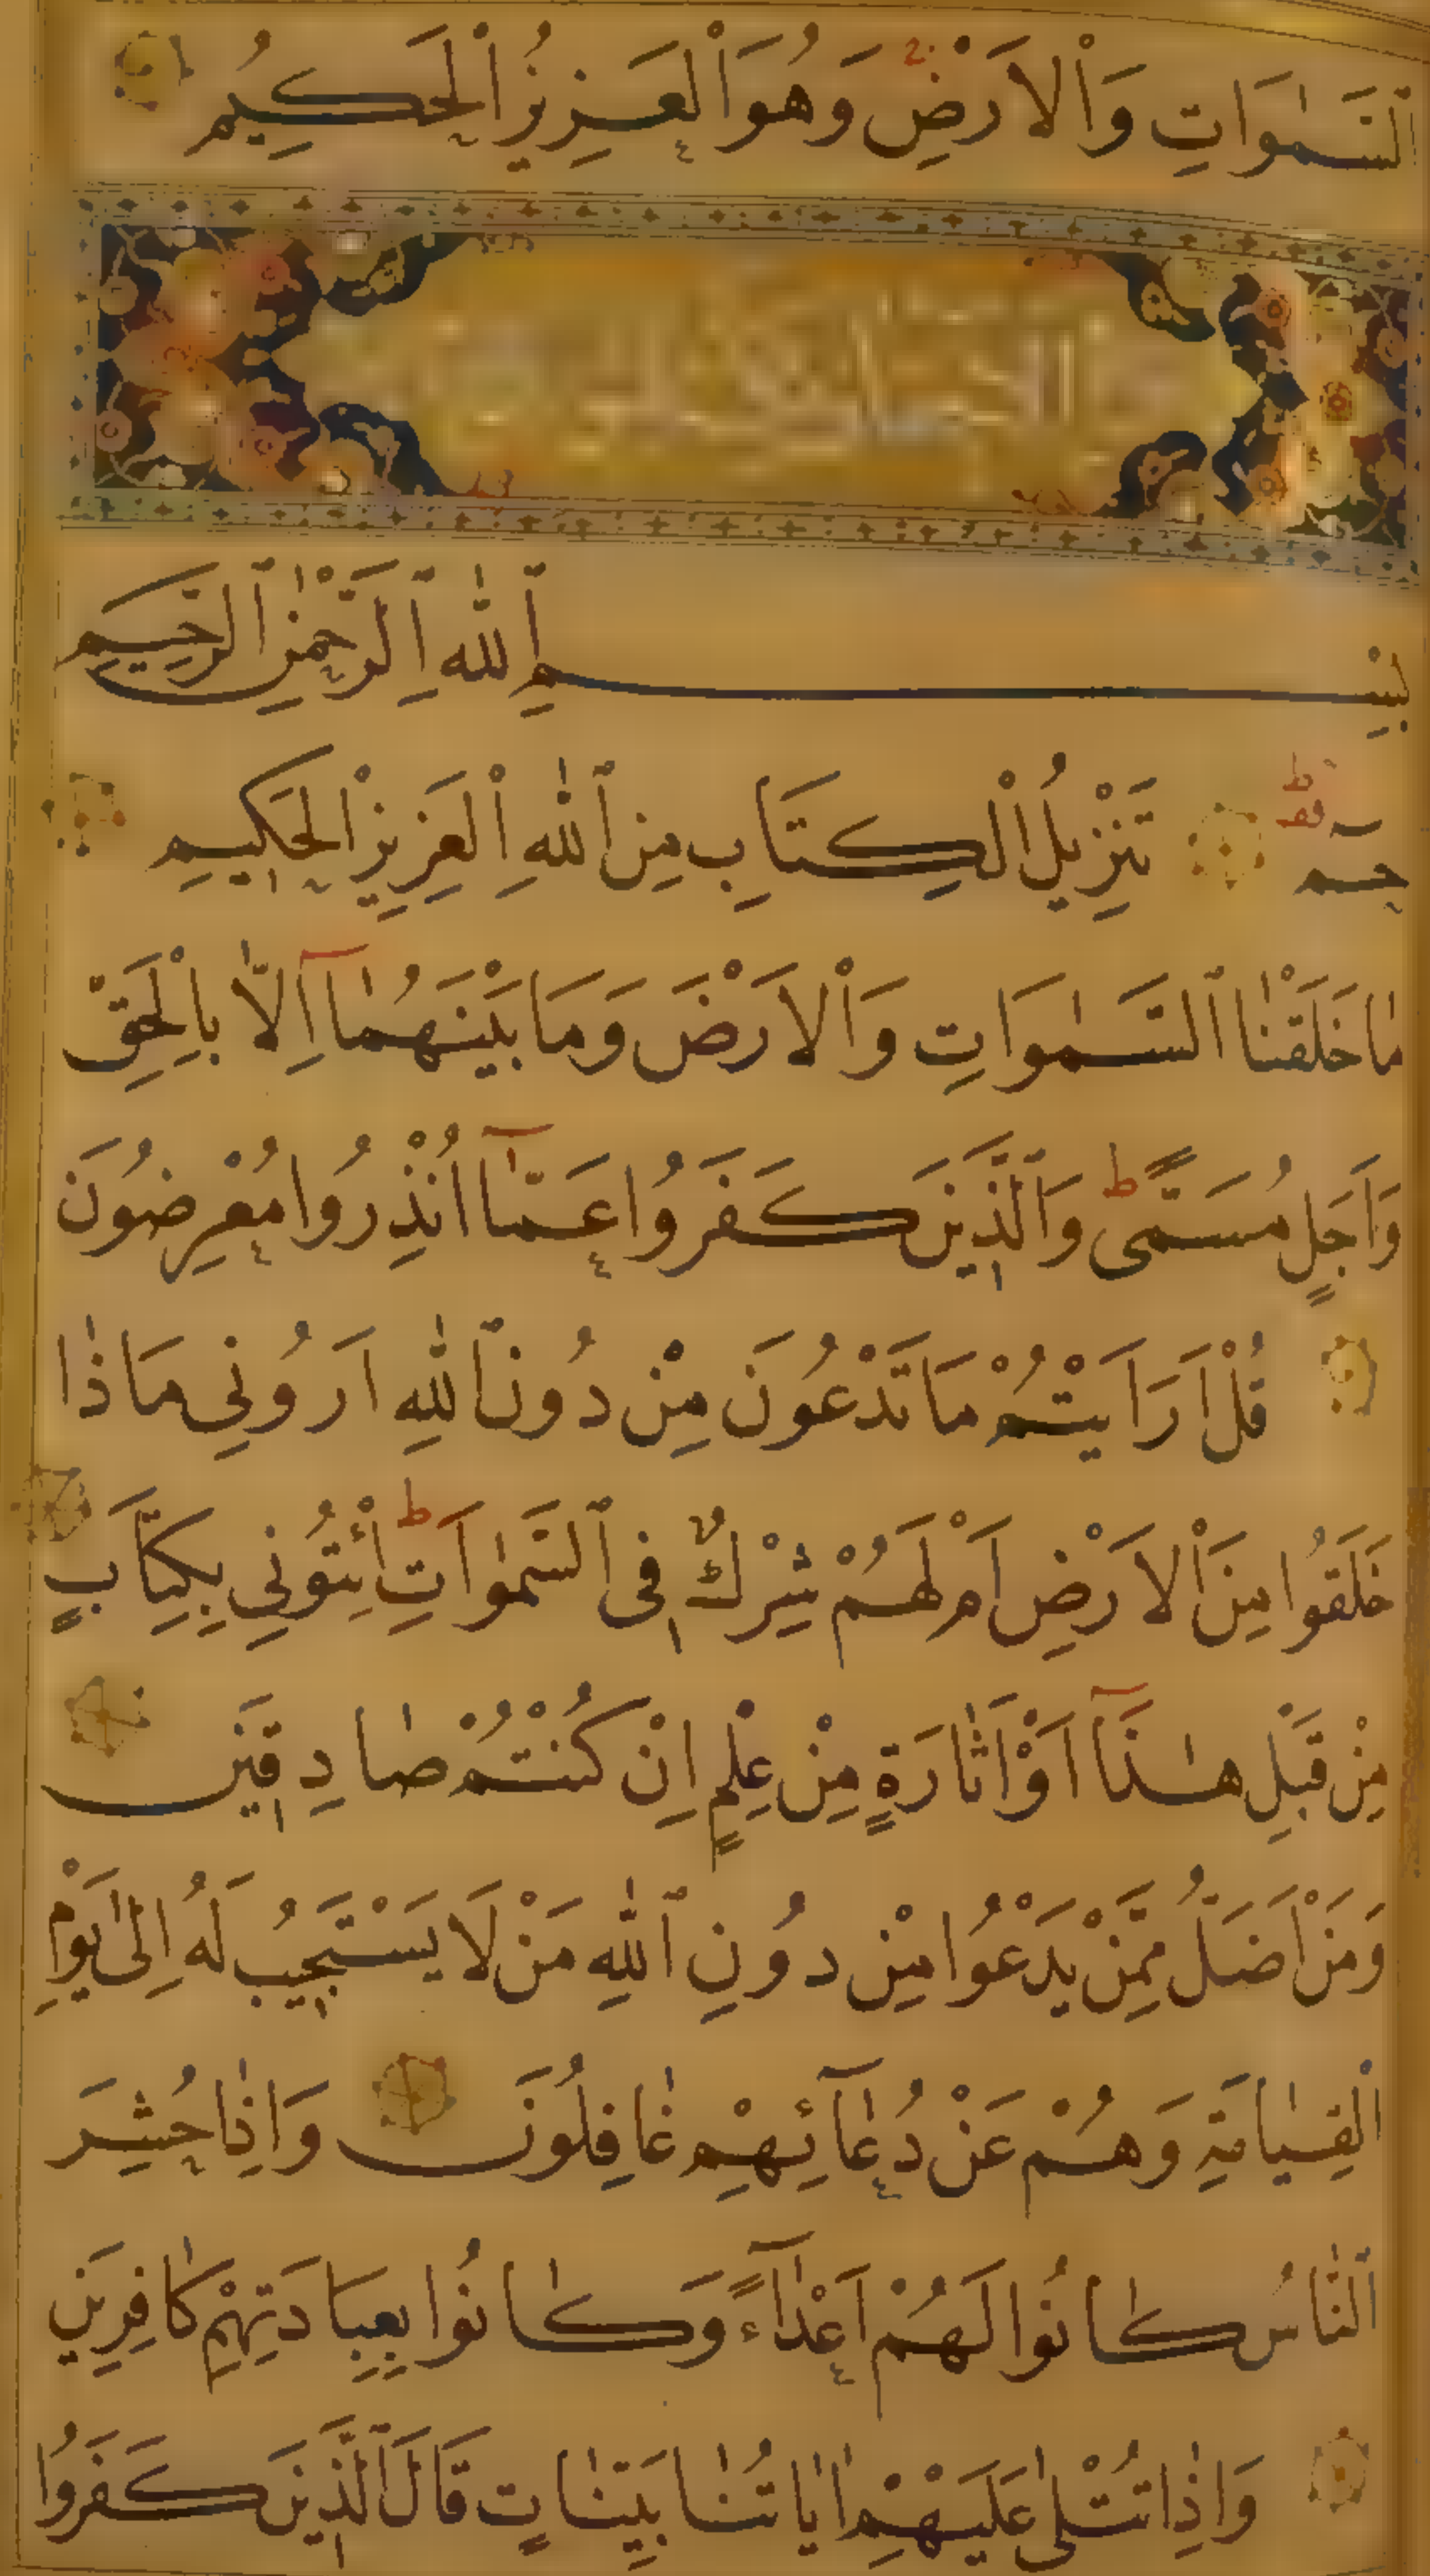 اَلسَّمٰوَاتِ وَاْلاَرْضِ وَهُوَ اْلعَزِيزُ اْلحَكِيمُ
بِسْمِ ٱللّٰهِ ٱلرَّحْمٰنِ ٱلرَّحِيمِ
حٓمٓ تَنْزِيلُ اْلكِتَابِ مِنَ ٱللّٰهِ اْلعَزِيزِ اْلحَكِيمِ
مٰا خَلَقْنٰا ٱلسَّمٰوَاتِ وَاْلاَرْضَ وَمَا بَيْنَهُمٰٓا اِلاّٰ بِاْلحَقِّ
وَاَجَلٍ مُسَمًّى ط وَٱلَّذِينَ كَفَرُوا عَمّٰٓا اُنْذِرُوا مُعْرِضُونَ
قُلْ اَرَاَيْتُمْ مَا تَدْعُونَ مِنْ دُونِ ٱللّٰهِ اَرُونِي مَاذٰا
خَلَقُوا مِنَ اْلاَرْضِ اَمْ لَهُمْ شِرْكٌ فِى ٱلسَّمٰوَاتِ ط اْئْتُونِي بِكِتَابٍ
مِنْ قَبْلِ هٰذَٓا اَوْ اَثٰارَةٍ مِنْ عِلْمٍ اِنْ كُنْتُمْ صٰادِقِينَ
وَمَنْ اَضَلُّ مِمَّنْ يَدْعُوا مِنْ دُونِ ٱللّٰهِ مَنْ لَا يَسْتَجِيبُ لَهُ اِلىٰ يَوْمِ
اْلقِيٰامَةِ وَهُمْ عَنْ دُعٰٓائِهِمْ غٰافِلُونَ وَاِذٰا حُشِرَ
ٱلنّٰاسُ كٰانُوا لَهُمْ اَعْدٰٓاءً وَكٰانُوا بِعِبَادَتِهِمْ كٰافِرِينَ
وَاِذٰا تُتْلٰى عَلَيْهِمْ اٰيٰاتُنٰا بَيِّنٰاتٍ قَالَ ٱلَّذِينَ كَفَرُوا